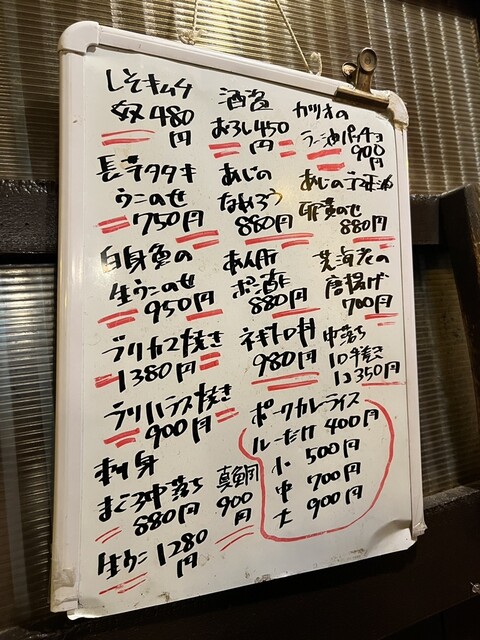 しそキムチ
奴 480
円
長芋タタキ
ウニのせ
750円
白身魚の
生ウニのせ
950円
ブリカマ焼き
1380円
ブリハラス焼き
900円
刺身
まぐろ中落ち
880円
生ウニ 1280
円
真鯛
900
円
酒盗
おろし450
円
あじの
なめろう
880円
あん肝
ポン酢
880円
ネギトロ丼
980円
カツオの
ラー油パッチョ
900
円
あじのゴマ油
卵黄のせ
880円
芝海老の
唐揚げ
700円
中落ち
1コ350円
ポークカレーライス
ルーだけ 400円
小 500円
中 700円
大 900円